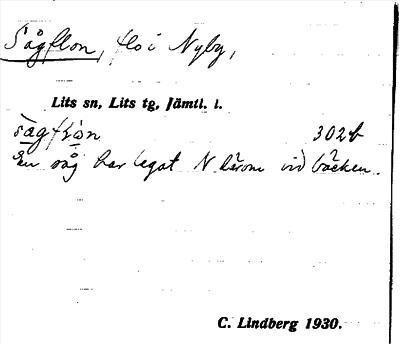 Sågflon, flo i Nyby,
Lits sn, Lits tg, Jämtl. l.
302b
En såg har legat N därom vid bäcken.
C. Lindberg 1930.